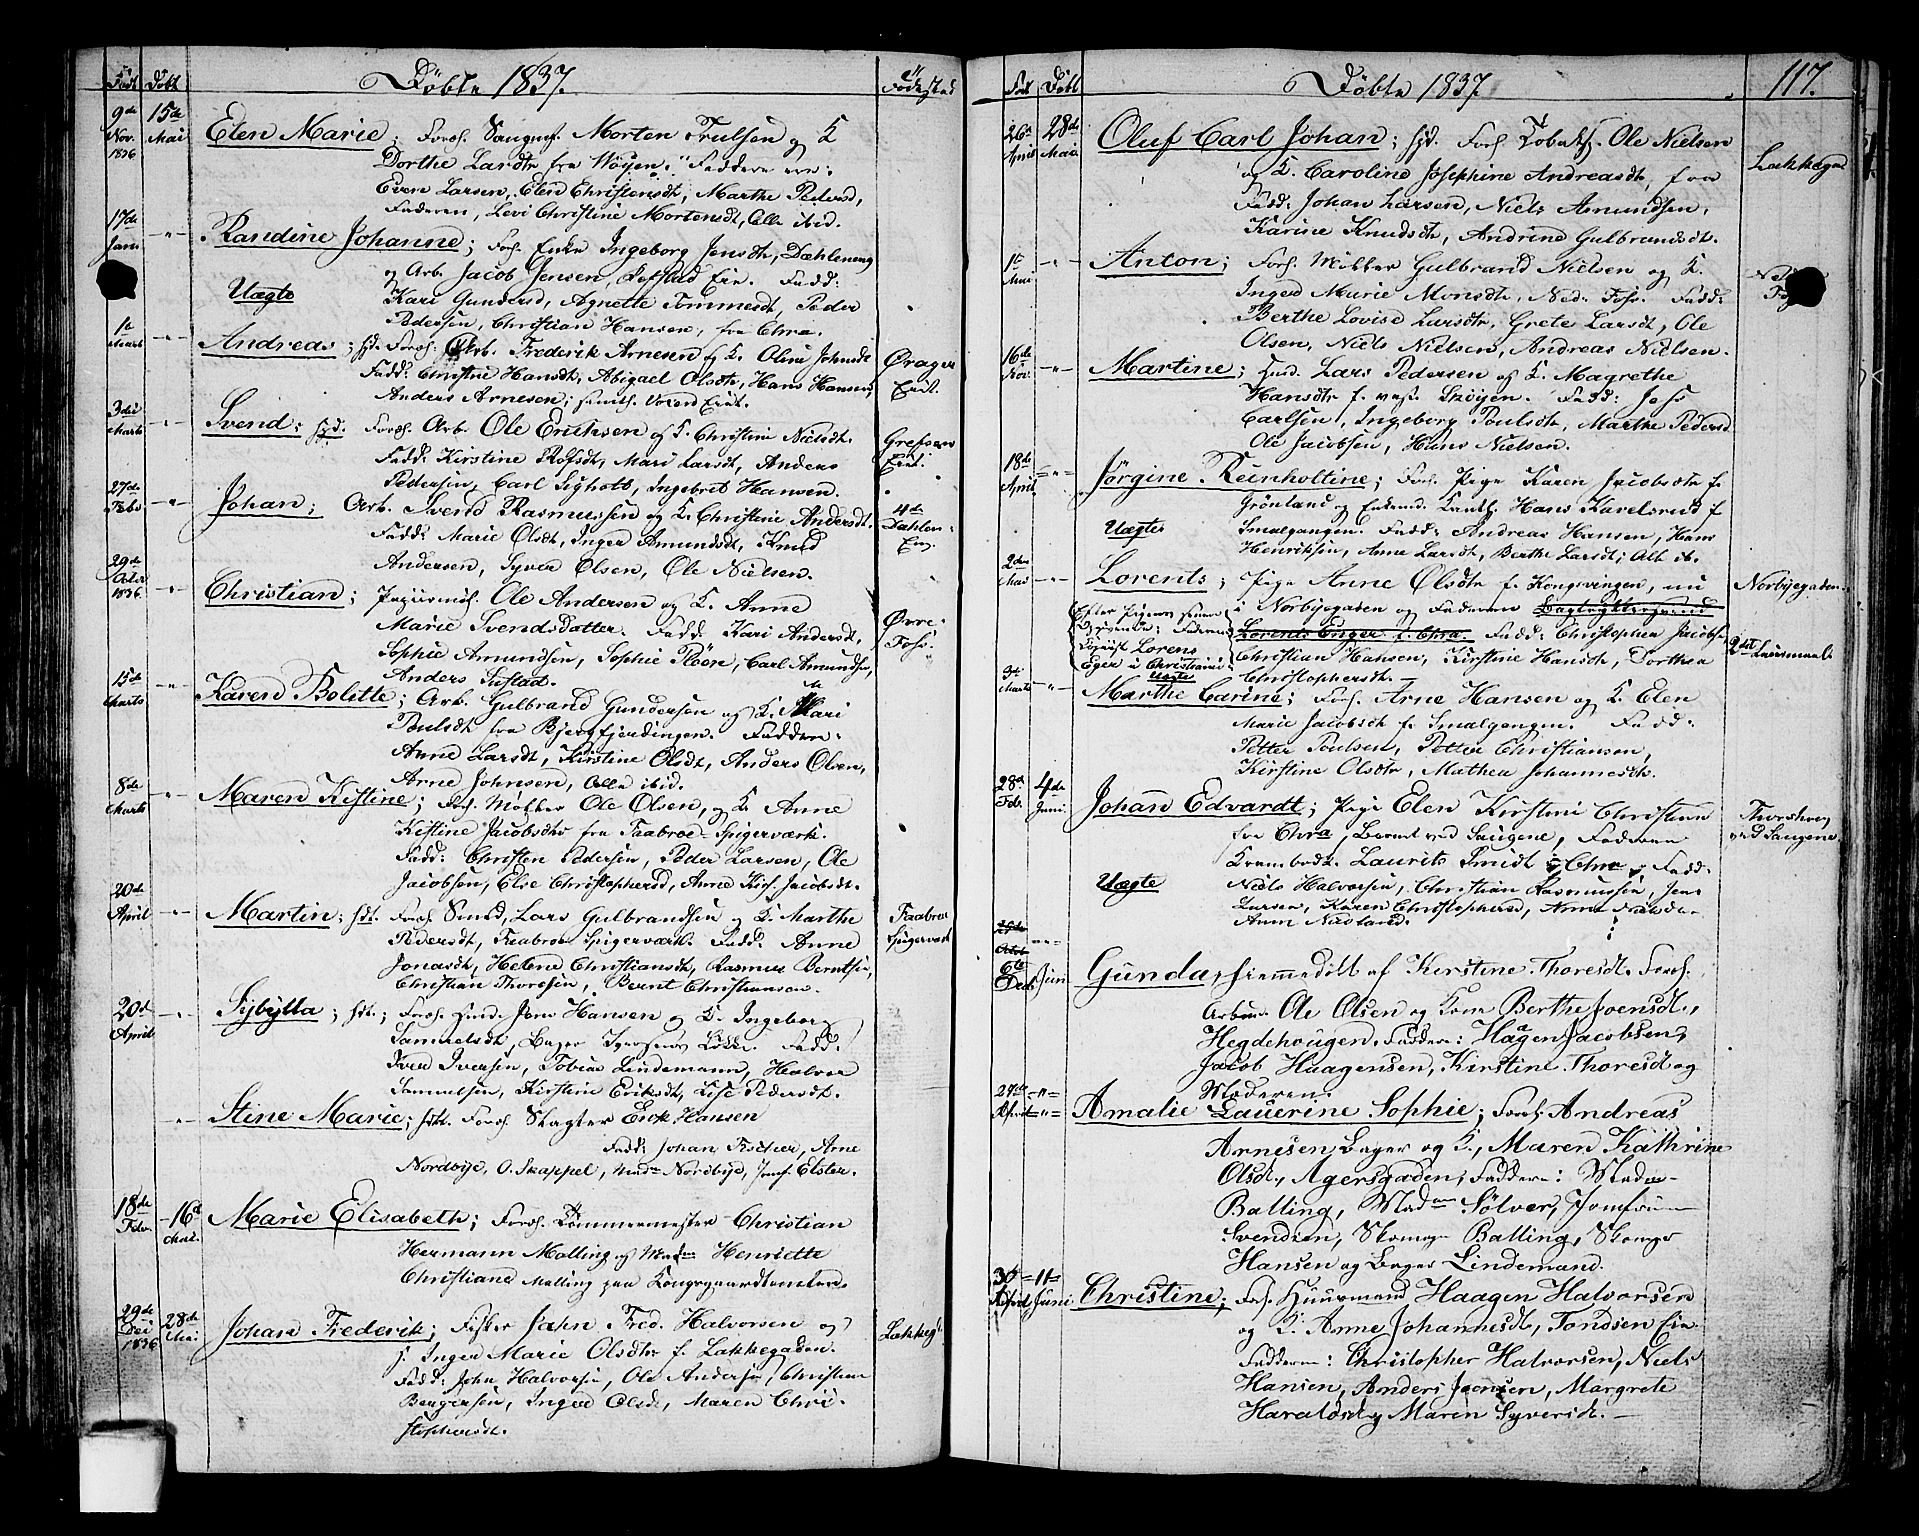 Født Døbt Døbte 1837. Fødested
9de Nov. 1836 15de Mai Elen Marie; Forh. Morten Trulsen og K
Dorthe Larsdtr fra Faddere ere:
Even Larsen, Elen Christensdt, Marthe Pedersd,
Faderen, Levi Christine Mortensdt, Alle ibid.
17de Jan. -"- Randine Johanne; Forh. Enke Ingeborg Jensdtr, Dæhleneng
og Arb. Jacob Jensen, Eie. Fadd:
Uægte Kari Gundersd, Agnethe Tommesdt, Peder
Pedersen, Christian Hansen, fra Chra.
1te Marts -"- Andreas; hjd. Forh. Arb. Frederik Arnesen og K. Oline Johnsdt Ørager
Fadd: Christine Hansdt, Abigael Olsdtr, Hans Hansen, Eie.
Anders Arnesen;
3die Marts -"- Svend; hjd. Forh. Arb. Ole Eriksen og K. Christine Nielsdt. Grefsens
Fadd: Kirstine Rolfsdt, Mari Larsdt, Anders Eie.
Pedersen, Carl Sigholt, Ingebret Hansen.
27de Febr -"- Johan; Arb. Svend Rasmussen og K. Christine Andersdt. 4de
Fadd: Marie Olsdt, Inger Amundsdt, Knud Dahlen-
Andersen, Syver Olsen, Ole Nielsen. Eng.
29de Octbr 1836 -"- Christian; Ole Andersen og K. Anne
Marie Svendsdatter. Fadd: Kari Andersdt, Øvre-
Sophie Amundsen, Sophie Pløen, Carl Amundsen, Foss.
Anders Sustad.
15de Marts -"- Karen Bolitte; Arb. Gulbrand Gundersen og K. Mari
Poulsdt fra Bjergfjerdingen. Faddere:
Anne Larsdt, Kirstine Olsdt, Anders Olsen,
Arne Johnsen, Alle ibid.
8de Marts -"- Maren Kistine; Forh. Møller Ole Olsen, og K. Anne
Kistine Jacobsdtr fra Taabroe-Spigerværk.
Fadd: Christen Pedersen, Peder Larsen, Ole
Jacobsen, Else Christophersd, Anne Kirs. Jacobsdt.
20de April -"- Martin; hdt. Forh. Smed, Lars Gulbrandsen og K. Marthe Taabroe
Pedersdt, Taabroe Spigerværk. Fadd: Anne Spigerværk
Jonasdt, Helene Christiansdt, Rasmus Berntsen,
Christian Thoresen, Bernt Christiansen.
20de April -"- Sybylla; hdt.; Forh. Jens Hansen og K. Ingeborg
Samuelsdt, Bager Iversens Løkke. Fadd:
Iver Iversen, Tobias Lindemann, Halvor
Samuelsen, Kirstine Eriksdt, Lise Pedersdt.
-"- Stine Marie; hdt. Forh. Slagter Erik Hansen
Fadd: Johan Fischer, Arne
Nordbye, O. Skappel, Madm Nordbye, Jomf. Elster.
18de Febr. -16de Mai. Marie Elisabeth; Forh. Tømmermester Christian
Hermann Malling og Madm Henriette
Christiane Malling paa Kongsgaardtomterne.
29de Dec 1836 28de Mai Johan Frederik; Fisker John Fred. Halvorsen og Lakkegd.
p. Inger Marie Olsdtr f. Lakkegaden.
Fadd: John Halvorsen, Ole Andersen, Christian
Bergersen, Inger Olsdt, Maren Chri-
stophersdt.
Født Døbt Døbte 1837 117.
26de April 28de Mai Oluf Carl Johan; hjd. Forh. Ole Nielsen Lakkegd
og K. Caroline Josephine Andreasdt, fra
Fadd: Johan Larsen, Niels Amundsen,
Karine Knudsdtr, Andrine Gulbrandsdt.
1te Mai -"- Anton; Forh. Møller Gulbrand Nielsen og K.
Inger Marie Monsdtr, Ned. Foss. Fadd:
Berthe Lovise Larsdtr, Grete Larsdt, Ole
Olsen, Niels Nielsen, Andreas Nielsen.
16de Nov. -"- Martine; Lars Pedersen og K. Magrethe
Hansdtr f. vest. Skøyen. Fadd: Jess
Carlsen, Ingeborg Poulsdtr, Marthe Pedersd
Ole Jacobsen, Hans Nielsen.
18de April -"- Jørgine Reinholtine; Forh. Pige Karen Jacobsdtr f.
Grønland og Enkemd. Hans Karelsrud f.
Uægte Smalgangen. Fadd: Andreas Hansen, Hans
Henriksen, Anne Larsdt, Berthe Larsdt; Alle ib.
2den Mai -"- Lorents; Pige Anne Olsdtr f. Kongsvingen, nu Norbyegaden.
i Norbyegaden og Faderen
Lorents Enger f. Chra. Fadd: Christopher Jacobsen
Christian Hansen, Kirstine Hansdtr, Dorthea
Christophersdt.
Efter Pigens senere Opgivende; Faderen Lorens Eger i Christiania
Uægte
3de Marts -"- Marthe Carine; Forh. Arne Hansen og K. Elen
Marie Jacobsdt f. Smalgangen. Fadd:
Petter Poulsen, Petter Christiansen,
Kirstine Olsdtr, Mathea Johannesdt.
28de Febr. 4de Juni Johan Edvardt; Pige Elen Kirstine Christensen Thorshoug
fra Chra, Barnet ved Saugene, Faderen ved Saugene.
Krambodk. Laurits Smidt i Chra. Fadd:
Uægte Niels Halvorsen, Christian Rasmussen, Jens
Larsen, Karen Christophersd, Anne
Ann Næsland.
6te Decb Juni Gunda, hjemmedøbt af Kirstine Thoresdt. Forh.
Arbm. Ole Olsen og Kone Berthe Joensdt,
Hegdehougen. Faddere: Hagen Jacobsen,
Jacob Haagensen, Kirstine Thoresd og
Moderen.
27de April -"- Amalie Lauerine Sophie; Forh. Andreas
Arnesen, Bager og K., Maren Kathrine
Olsdt., Agersgaden, Faddere: Madm
Balling, Madm Sølver, Jomfrue
Svendsen, Skomager Balling, Skomager
Hansen og Bager Lindemand.
30 April 11 Juni Christine; Forh. Huusmand Haagen Halvorsen
og K. Anne Johannesdt, Tondsen Eie
Faddere: Christopher Halvorsen, Niels
Hansen, Anders Joensen, Margrete
Haraldsd, Maren Syversdt.